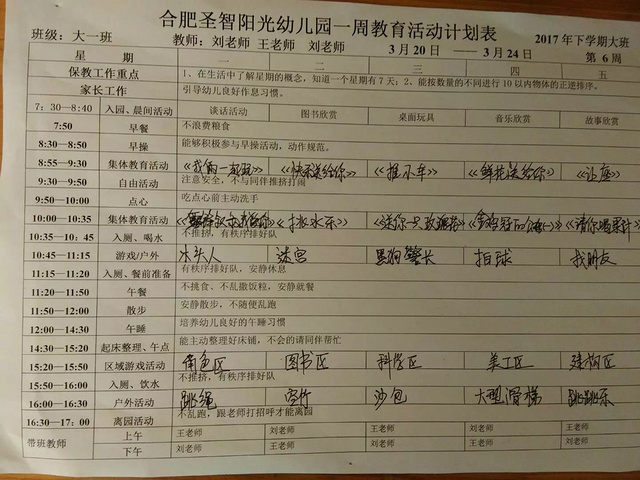 合肥圣智阳光幼儿园一周教育活动计划表
班级：大一班 教师：刘老师 王老师 刘老师 3月20日 ——3月24日 2017年下学期大班
星 期 一 二 三 四 五 第 6 周
保教工作重点 1、在生活中了解星期的概念，知道一个星期有7天；2、能按数量的不同进行10以内物体的正逆排序。
家长工作 引导幼儿良好作息习惯。
7：30—8:40 入园、晨间活动 谈话活动 图书欣赏 桌面玩具 音乐欣赏 故事欣赏
7:50 早餐 不浪费粮食
8:30—8:50 早操 能够积极参与早操活动，动作规范。
8:55—9:30 集体教育活动 《我的一起玩》 《快乐送给你》 《推小车》 《鲜花送给你》 《让座》
9:30—9:50 自由活动 注意安全，不与同伴推挤打闹
9:50—10:00 点心 吃点心前主动洗手
10:00—10:35 集体教育活动 《请你喝果汁》
10:35—10：45 入厕、喝水 不推挤，有秩序排好队
10:45—11:15 游戏/户外 木头人 迷宫 黑狗警长 拍球 找朋友
11:15—11:20 入厕、餐前准备 有秩序排好队，安静休息
11:20—11:50 午餐 不挑食、不乱撒饭粒，安静就餐
11:50—12:00 散步 安静散步，不随便乱跑
12:00—14:30 午睡 培养幼儿良好的午睡习惯
14:30—15:20 起床整理、午点 能主动整理好床铺，不会的请同伴帮忙
15:20—15:50 区域游戏活动 角色区 图书区 科学区 美工区 建构区
15:50—16:00 入厕、饮水 不推挤，有秩序排好队
16:00—16:30 户外活动 跳绳 沙包 大型滑梯 跳跳乐
16:30—17：00 离园活动 不乱跑，跟老师打招呼才能离园
带班教师 上午 王老师 刘老师 王老师 刘老师 王老师
下午 刘老师 王老师 刘老师 王老师 刘老师